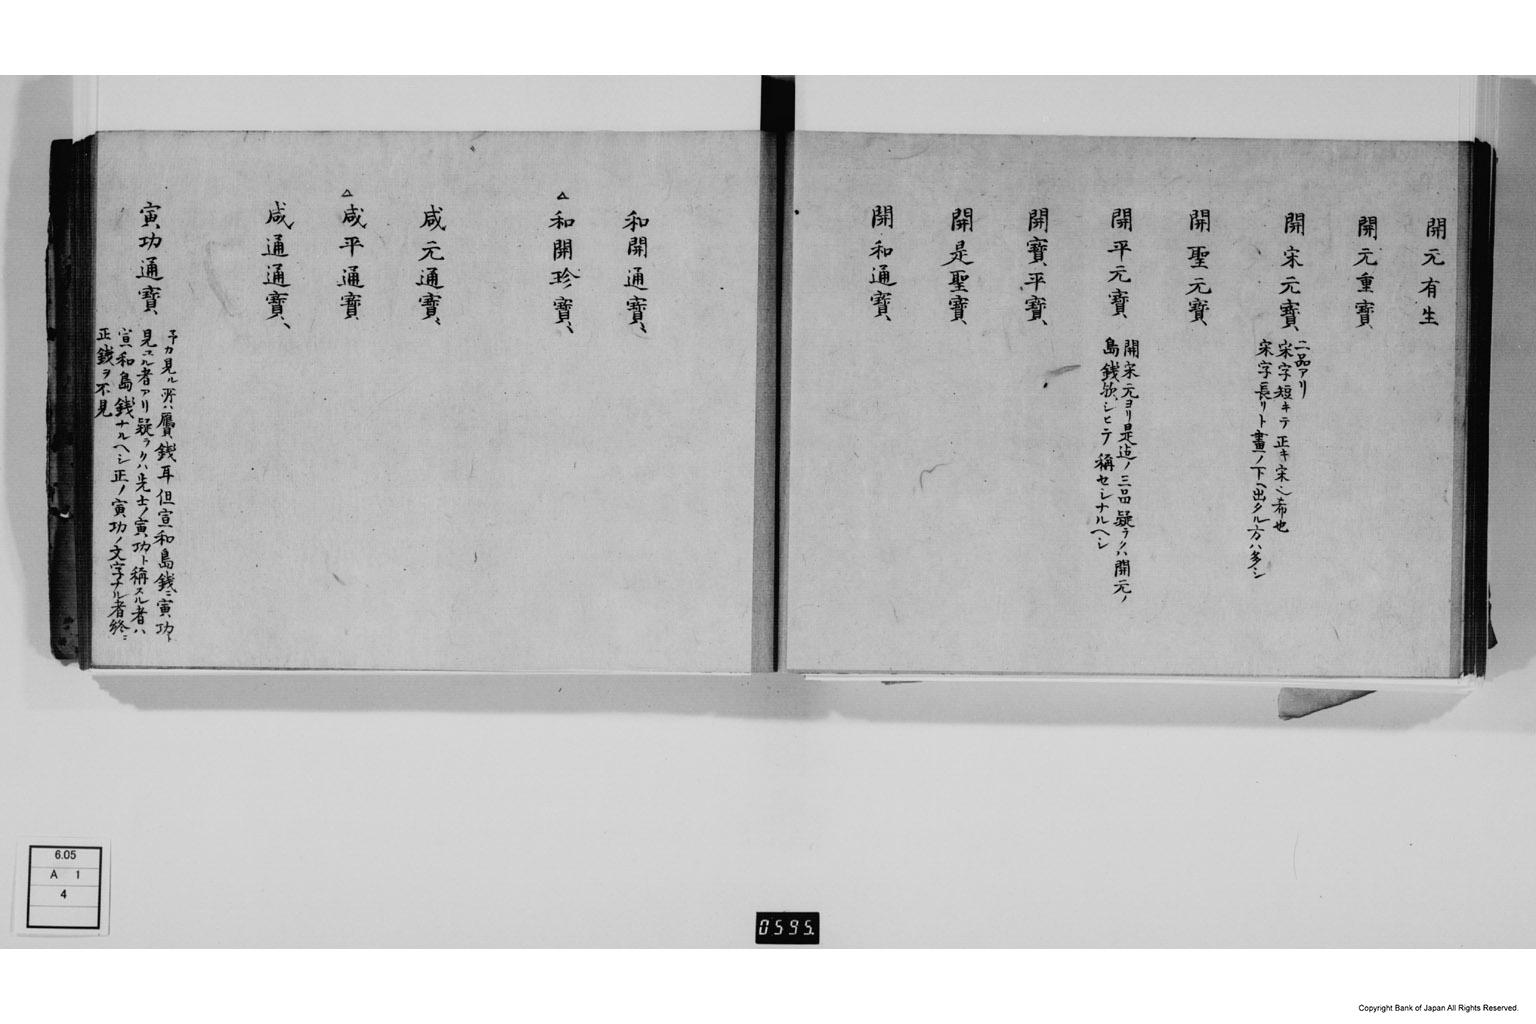 開元有生
開元重寳
開宋元寳
二品アリ
宋字短キテ正キ宋ハ希也
宋字長リト畫ノ下ヘ出タル方ハ多シ
開聖元寳
開平元寳
開宋元ヨリ是迠ノ三品疑ラクハ開元ノ
島銭歟シヒテ稱セシナルヘシ
開寳平寳
開是聖寳
開和通寳
和開通寳
△和開珍寳
咸元通寳
△咸平通寳
咸通通寳
寅功通寳
予カ見ル所ハ贋銭耳但宣和島銭ニ寅功ト
見ユル者アリ疑ラクハ先士ノ寅功ト稱スル者ハ
宣和島銭ナルヘシ正ノ寅功ノ文字ナル者終ニ
正銭ヲ不見
6.05
A 1
4
0595.
Copyright Bank of Japan All Rights Reserved.